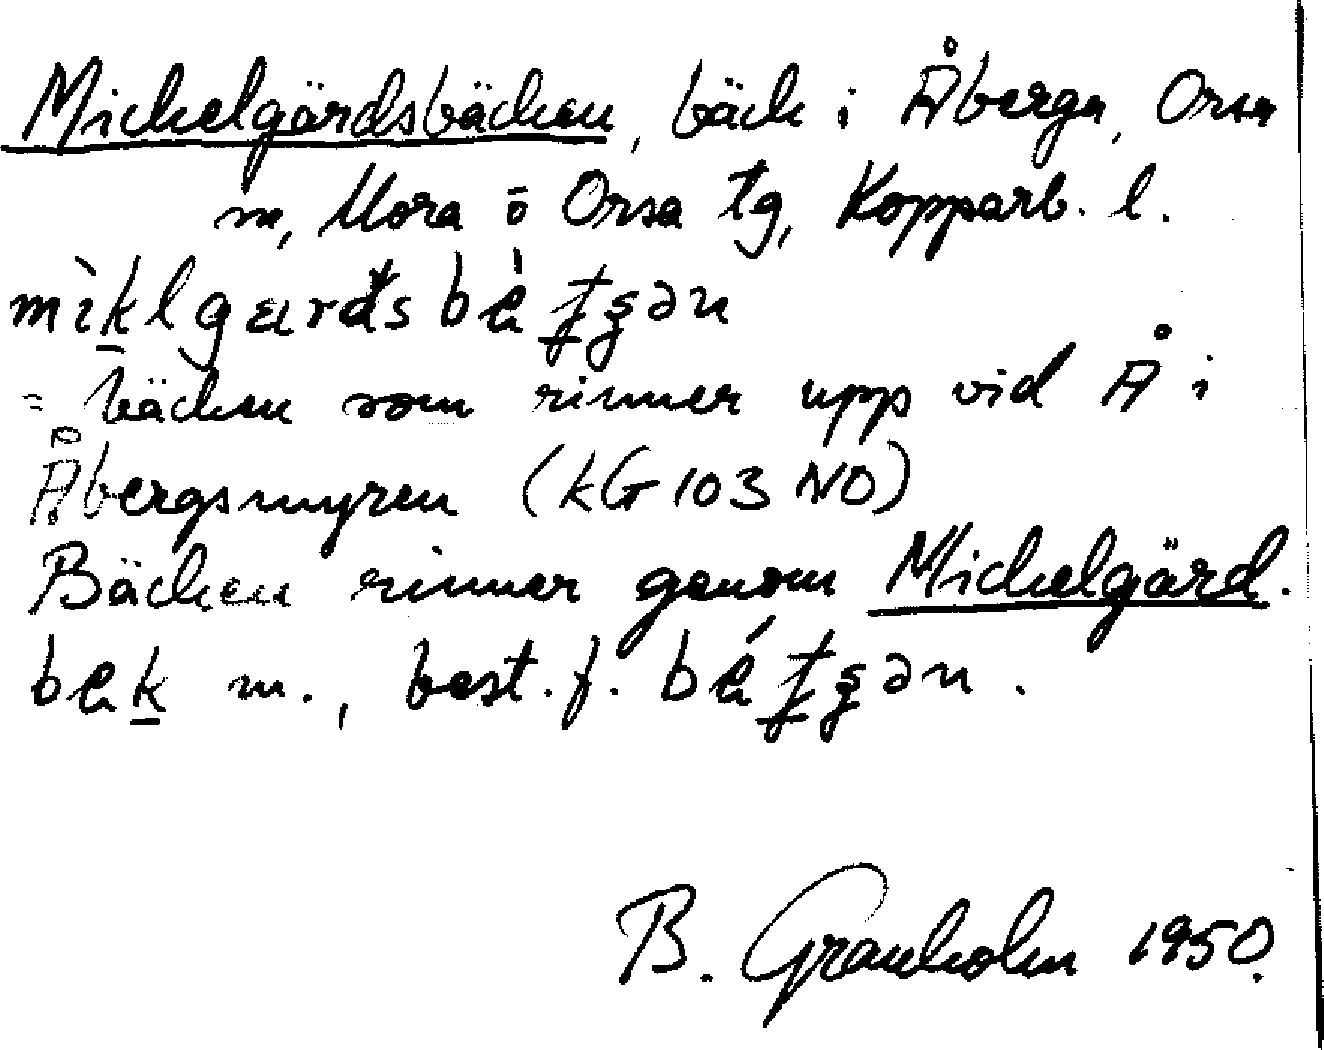 Mickelgärdsbäcken, bäck i Åberga, Orsa
m, Mora o Orsa tg, Kopparb. l.
= bäcken som rinner upp vid Å i
Åbergsmyren (KG 103 NO)
Bäcken rinner genom Mickelgärd.
m., best. f.
B. Granholm 1950.